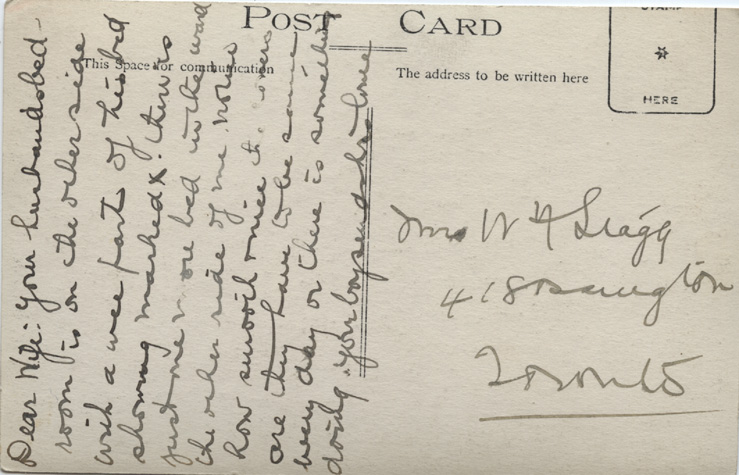 POST CARD
This Space for communication
The address to be written here
STAMP
HERE
Dear Wife: Your husbands bed-
room is on the other side
with a wee part of his bed
showing marked X. there is
just one more bed in the ward
the other side of me. note
how smooth & nice the covers
are they have to be same
every day or there is something
doing. your boy sends his love
Mrs W H Stagg
418 Ossington
Toronto